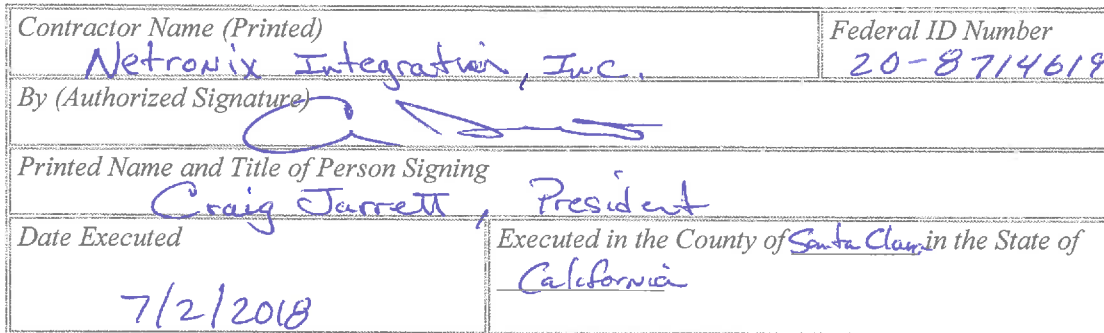 Contractor Name (Printed)
Federal ID Number
Netronix Integration, Inc.
20-8714619
By (Authorized Signature)
Printed Name and Title of Person Signing
Craig Jarrett, President
Date Executed
Executed in the County of Santa Clara in the State of
California
7/2/2018